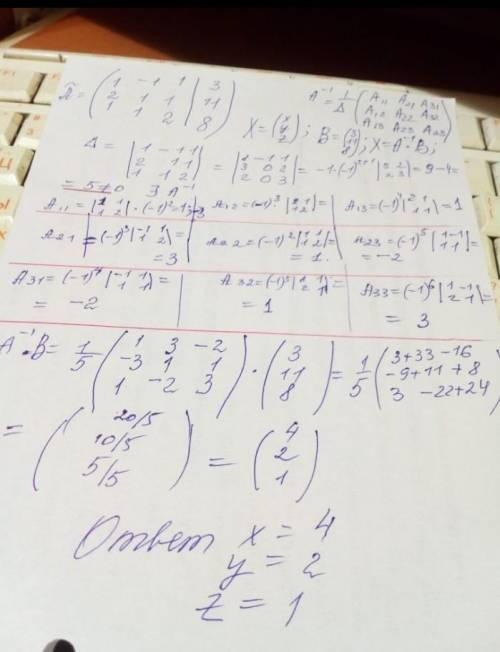 Ã = ( 1 -1 1 | 3
2 1 1 | 11
1 1 2 | 8 )
A⁻¹ = 1/Δ ( A₁₁ A₂₁ A₃₁
A₁₂ A₂₂ A₃₂
A₁₃ A₂₃ A₃₃ )
X = ( x y z ); B = ( 3 11 8 ); X = A⁻¹·B;
Δ = | 1 -1 1 ; 2 1 1 ; 1 1 2 | = | 1 -1 1 ; 3 0 2 ; 2 0 3 | = -1·(-1)²⁺¹ | 3 2 ; 2 3 | = 9-4=
= 5≠0 ∃ A⁻¹
A₁₁ = | 1 1 ; 1 2 | · (-1)² = 1; A₁₂ = (-1)³ | 2 1 ; 1 2 | = -3 A₁₃ = (-1)⁴ | 2 1 ; 1 1 | = 1
A₂₁ = (-1)³ | -1 1 ; 1 2 | = = 3 A₂₂ = (-1)² | 1 1 ; 1 2 | = = 1. A₂₃ = (-1)⁵ | 1 -1 ; 1 1 | = = -2
A₃₁ = (-1)⁴ | -1 1 ; 1 1 | = = -2 A₃₂ = (-1)⁵ | 1 1 ; 2 1 | = = 1 A₃₃ = (-1)⁶ | 1 -1 ; 2 1 | = = 3
A⁻¹·B = 1/5 ( 1 3 -2 ; -3 1 1 ; 1 -2 3 ) · ( 3 ; 11 ; 8 ) = 1/5 ( 3+33-16 ; -9+11+8 ; 3 -22+24 )
= ( 20/5 ; 10/5 ; 5/5 ) = ( 4 ; 2 ; 1 )
Ответ x = 4
y = 2
z = 1